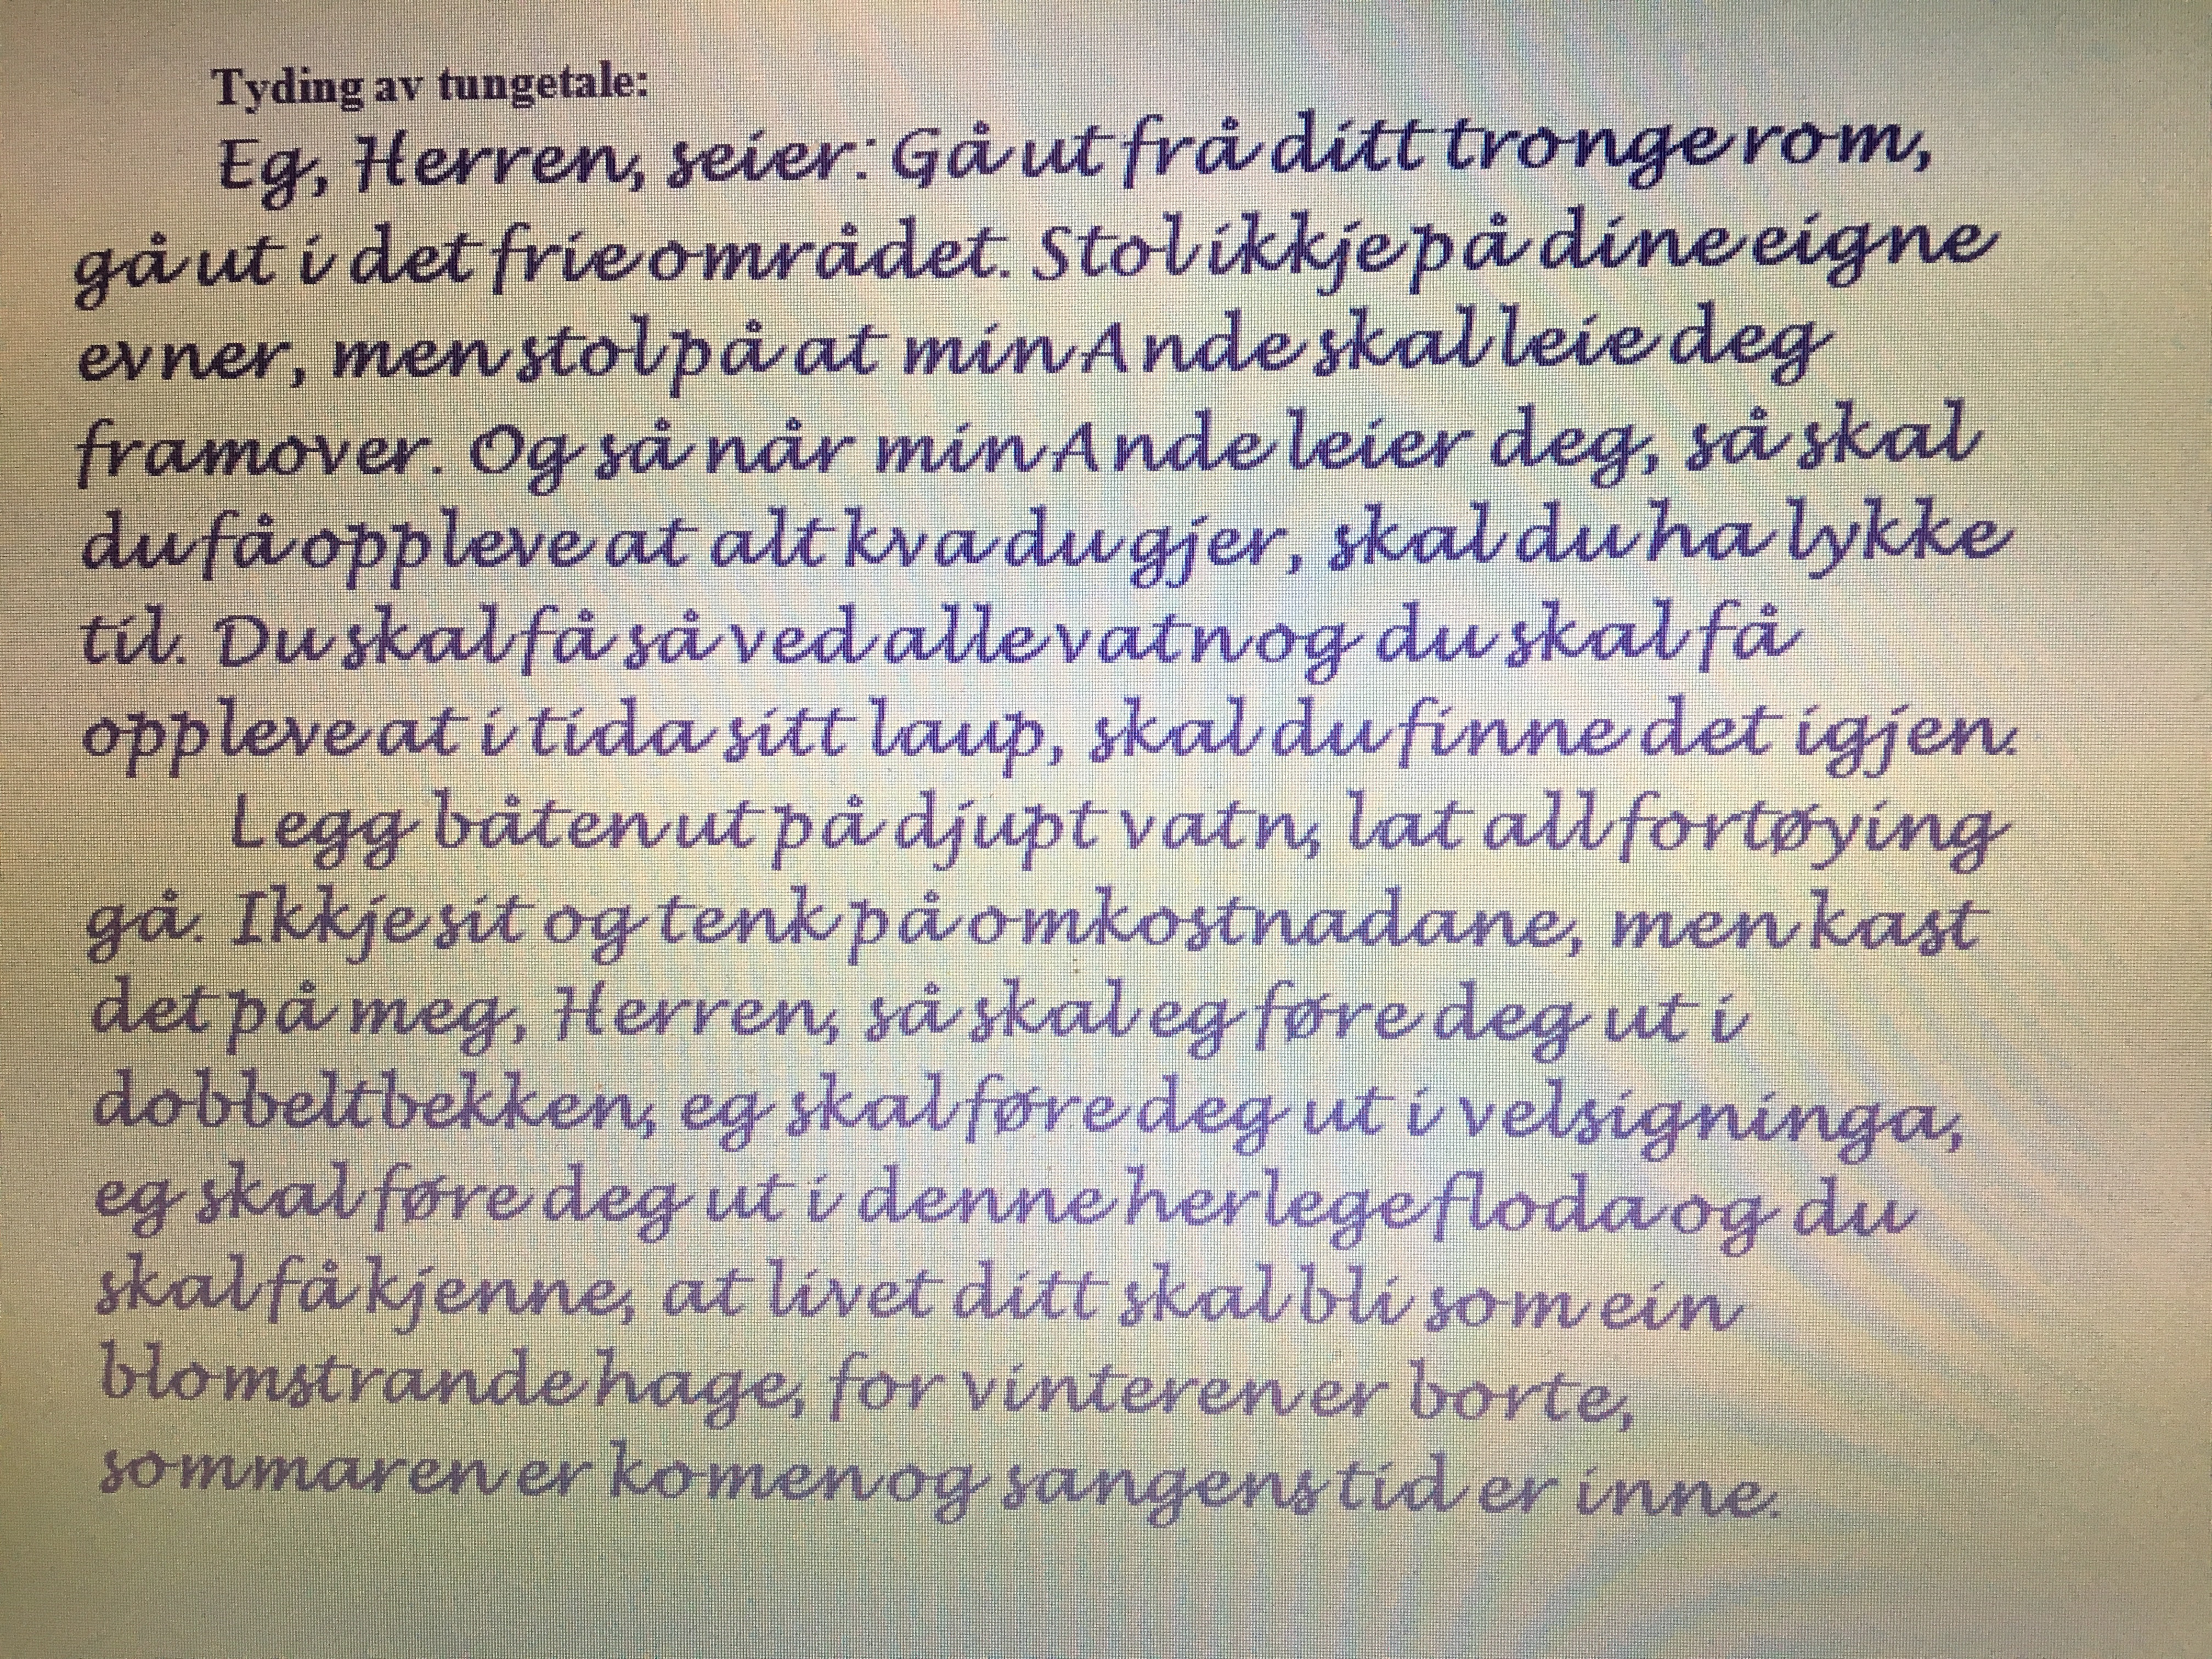 Tyding av tungetale:
Eg, Herren, seier: Gå ut frå ditt tronge rom,
gå ut i det frie området. Stol ikkje på dine eigne
evner, men stol på at min Ande skal leie deg
framover. Og så når min Ande leier deg, så skal
du få oppleve at alt kva du gjer, skal du ha lykke
til. Du skal få så ved alle vatn og du skal få
oppleve at i tida sitt laup, skal du finne det igjen.
Legg båten ut på djupt vatn, lat all fortøying
gå. Ikkje sit og tenk på omkostnadane, men kast
det på meg, Herren, så skal eg føre deg ut i
dobbeltbekken, eg skal føre deg ut i velsigninga,
eg skal føre deg ut i denne herlege floda og du
skal få kjenne, at livet ditt skal bli som ein
blomstrande hage, for vinteren er borte,
sommaren er komen og sangens tid er inne.